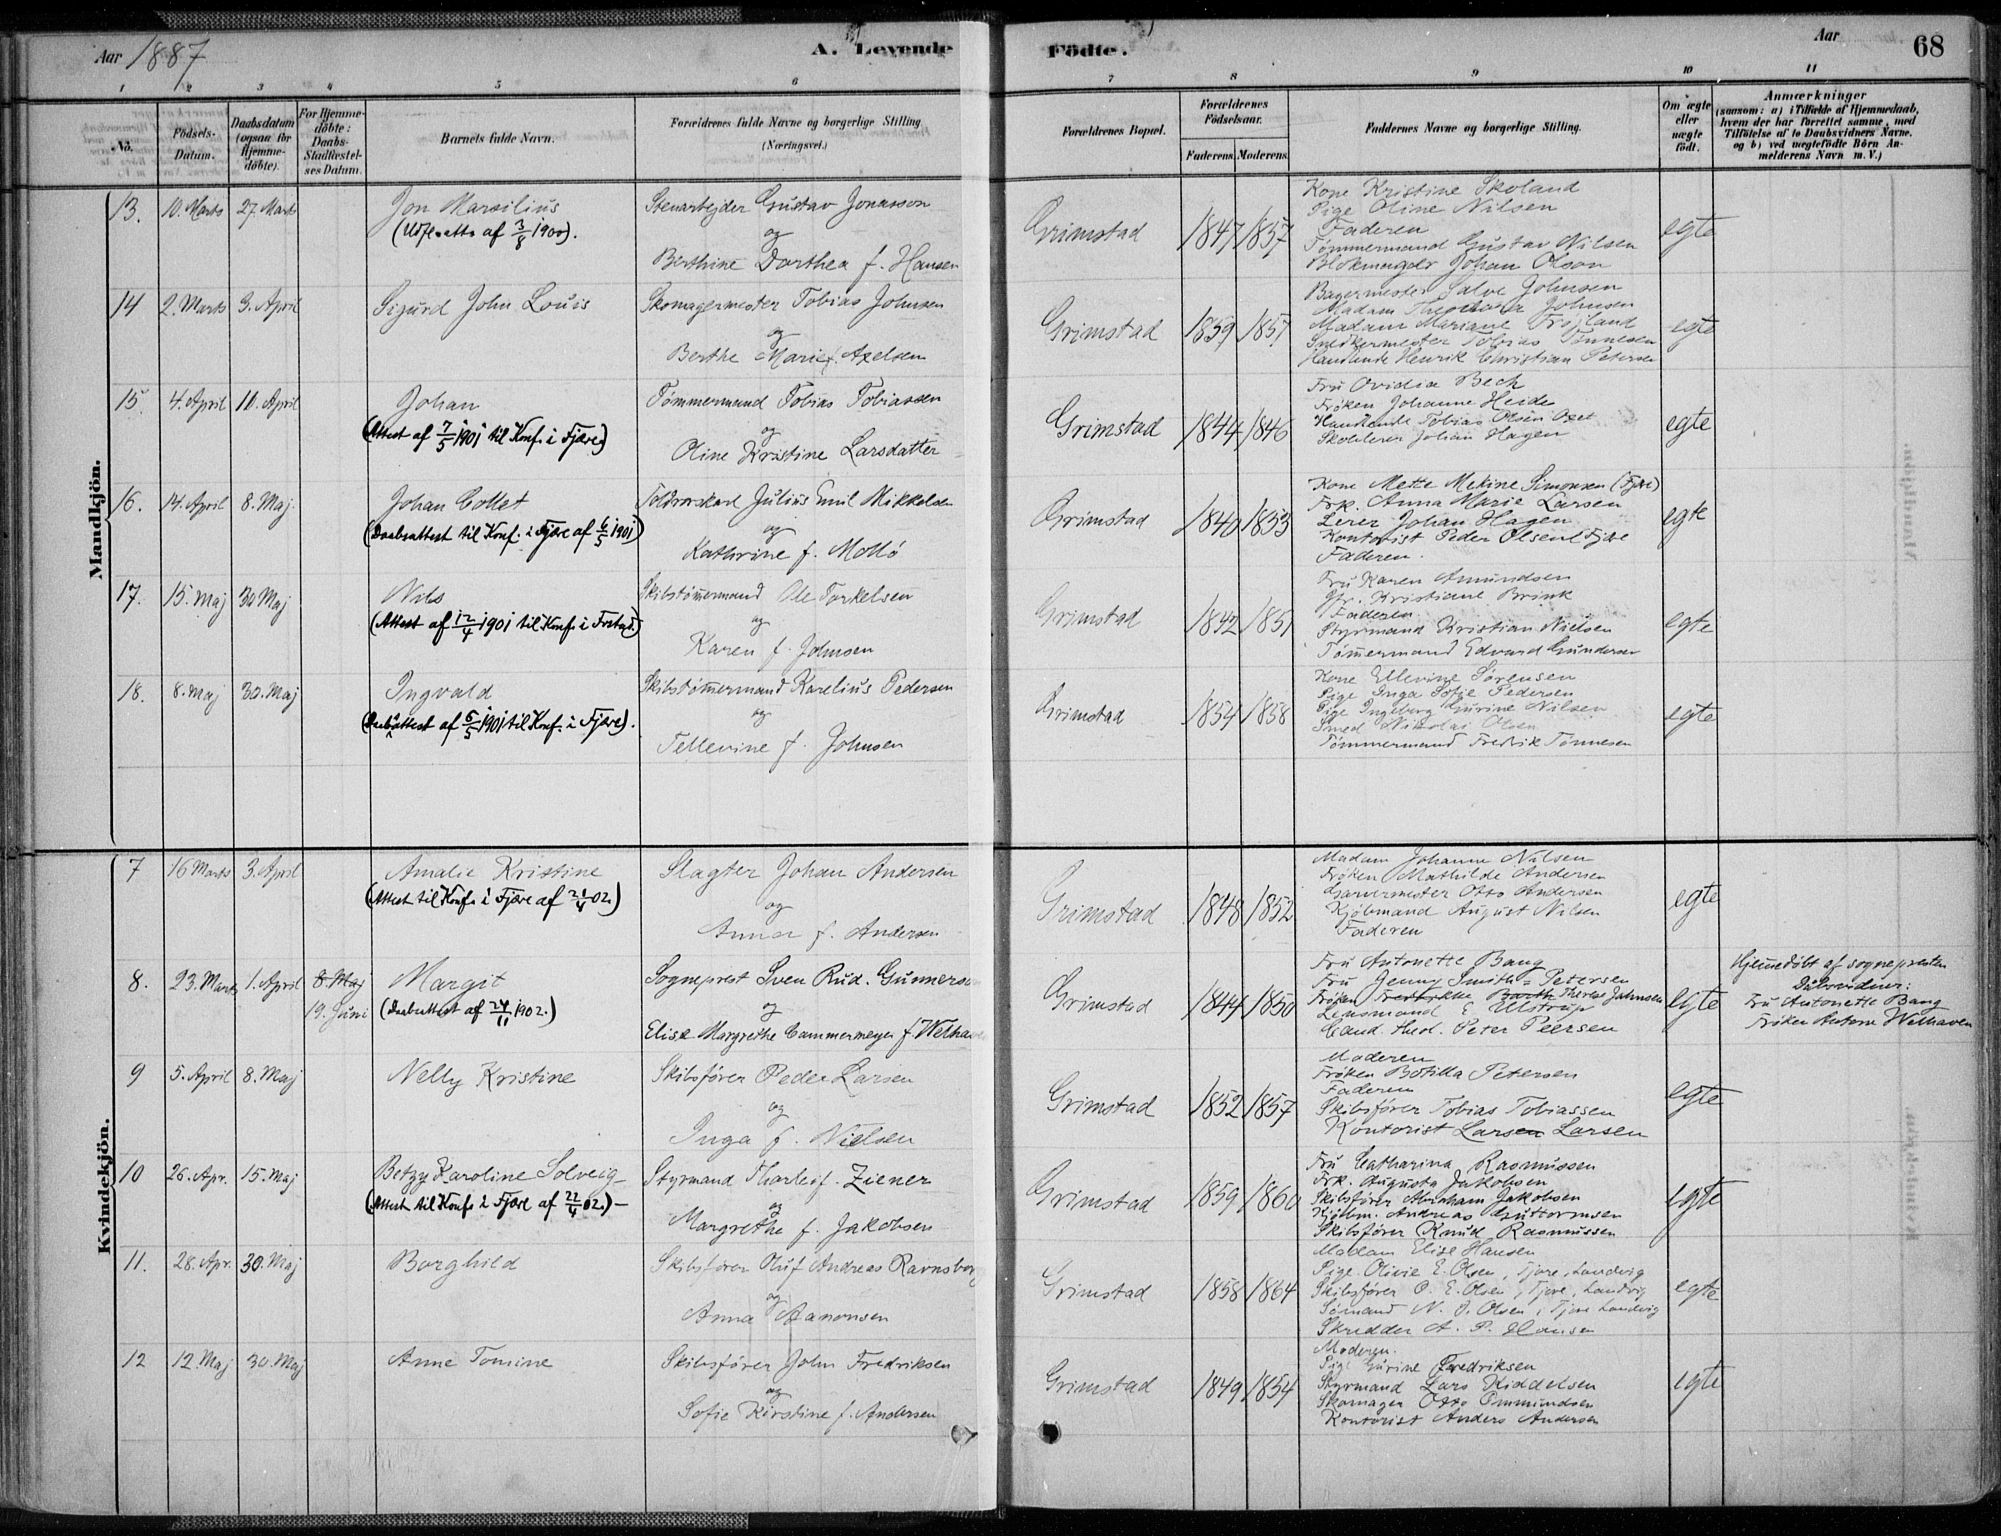 Aar 1887
A. Levende Födte.
Aar
68
1 2 3 4 5 6 7 8 9 10 11
No.
Födsels-Datum.
Daabsdatum (ogsaa for Hjemme-döbte).
For Hjemme-döbte: Daabs-Stadfæstel-ses Datum.
Barnets fulde Navn.
Forældrenes fulde Navne og borgerlige Stilling (Næringsvei.)
Forældrenes Bopæl.
Forældrenes Födselsaar.
Faderens. Moderens.
Faddernes Navne og borgerlige Stilling.
Om ægte eller uægte födt.
Anmærkninger
(saasom: a) i Tilfælde af Hjemmedaab,
hvem der har forrettet samme, med
Tilföielse af to Daabsvidners Navne.
og b) ved uægtefödte Börn An-
melderens Navn m. V.)
Mandkjön.
13. 10. Marts 27. Marts
Jon Marsilius
af 3/8 1900).
Stenarbejder Gustav Jonasson
og
Berthine Dorthea f. Hansen
Grimstad 1847 1857
Kone Kristine Skoland
Pige Oline Nilsen
Faderen
Tømmermand Gustav Nilsen
Blokmager Johan Olson
egte
14 2. Marts 3. April
Sigurd John Louis
Skomagermester Tobias Johnsen
og
Berthe Marie f. Axelsen
Grimstad 1859 1857
Bagermester Salve Johnsen
Madam Theodora Johnsen
Madam Mariane Frøjland
Snedkermester Tobias Tønnesen
Handlende Henrik Christian Petersen
egte
15. 4. April 10. April
Johan
(Attest af 7/5 1901 til Konf. i Fjære)
Tømmermand Tobias Tobiassen
og
Oline Kristine Larsdatter
Grimstad 1844 1846
Fru Ovidia Bech
Frøken Johanne Heide
Handlende Tobias Olsen
Johan Hagen
egte
16. 14. April 8. Maj
Johan Collet
(Daabsattest til Konf. i Fjære af 6/5 1901)
Julius Emil Mikkelsen
og
Kathrine f. Mollø
Grimstad 1840 1853
Kone Mette Mekine Simonsen (Fjære)
Frk. Anna Marie Larsen
Lerer Johan Hagen
Kontorist Peder Olsen
Faderen.
egte
17. 15. Maj 30 Maj
Nils
(Attest af 12/4 1901 til Konf. i)
Skibstømmermand Ole Torkelsen
og
Karen f. Johnsen
Grimstad 1842 1851
Fru Karen Amundsen
Jfr. Kristiane Brink
Faderen
Styrmand Kristian Nielsen
Tømmermand Edvard Gundersen
egte
18. 8. Maj 30. Maj
Ingvald
(Daabsattest af 5/5 1901 til Konf. i Fjære).
Skibstømmermand Karelius Pedersen
og
Tellevine f. Johnsen
Grimstad 1854 1858
Kone Ellevine Sørensen
Pige Inga Sofie Pedersen
Pige Ingeborg Gurine Nilsen
Smed Nikolai Olsen
Tømmermand Fredrik Tønnesen
egte
Kvindekjön.
7 16 Marts 3. April
Amalie Kristine
(Attest til Konf. i Fjære af 21/4 02.)
Slagter Johan Andersen
og
Anna f. Andersen
Grimstad 1848 1852
Madam Johanne Nilsen
Frøken Mathilde Andersen
Garvermester Otto Andersen
Kjøbmand August Nilsen
Faderen
egte
8. 23. Marts 1. April 8. Maj
19. Juni
Margit
(Daabsattest af 24/11 1902.)
Sogneprest Sven Rud. Gunnersen
og
Elise Margrethe Cammermeyer f. Welhaven
Grimstad 1844 1850
Fru Antonette Bang
Fru Jenny Smith-Petersen
Frøken Fredrikke Barth Therese Jahnsen
Lensmand E Ellstrup
Cand. theol. Peter Peersen
egte
Hjemmedøbt af sognepresten
Dåbsvidner:
Fru Antonette Bang
Frøken Welhaven
9 5. April 8. Maj
Nelly Kristine
Skibsfører Peder Larsen
og
Inga f. Nielsen
Grimstad 1852 1857
Moderen
Frøken Botilla Petersen
Faderen
Skibsfører Tobias Tobiassen
Kontorist Larsen Larsen
egte
10 26. Apr. 15. Maj
Betzy Karoline Solveig
(Attest til Konf. i Fjære af 22/4 02.)
Styrmand Tharlef. Ziener
og
Margrethe f. Jakobsen
Grimstad 1859 1860
Fru Catharina Rasmussen
Frk. Augusta Jakobsen
Skibsfører Abraham Jakobsen
Kjøbm. Andreas Guttormsen
Skibsfører Knud Rasmussen
egte
11. 28. Apr. 30. Maj
Borghild
Skibsfører Oluf Andreas Ravnsborg
og
Anna Aanonsen
Grimstad 1858 1864
Madam Elise Hansen
Pige Olivie E. Olsen, Fjære, Landvig
Skibsfører O. E. Olsen, Fjære, Landvig
Sømand N. O. Olsen, Fjære Landvig
Skredder A. P. Hansen
egte
12 12. Maj 30. Maj
Anne Tomine
Skibsfører John Fredriksen
og
Sofie Kirstine f. Andersen
Grimstad 1849 1854
Moderen.
Pige Gurine Fredriksen
Styrmand Lars Kiddelsen
Skomager Otto Ommundsen
Kontorist Anders Andersen
egte